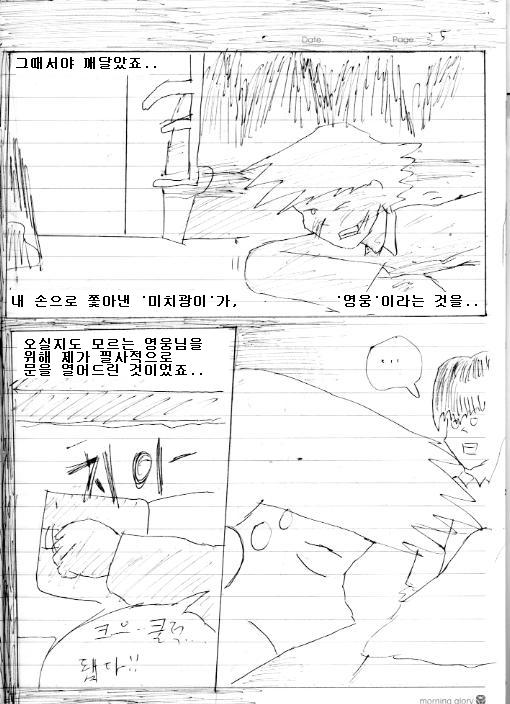 Date.
Page. 35
그때서야 깨달았죠..
내 손으로 쫓아낸 '미치광이'가,
'영웅'이라는 것을..
오실지도 모르는 영웅님을
위해 제가 필사적으로
문을 열어드린 것이었죠..
...
지이-
크으..쿨럭...
됐다!!
morning glory